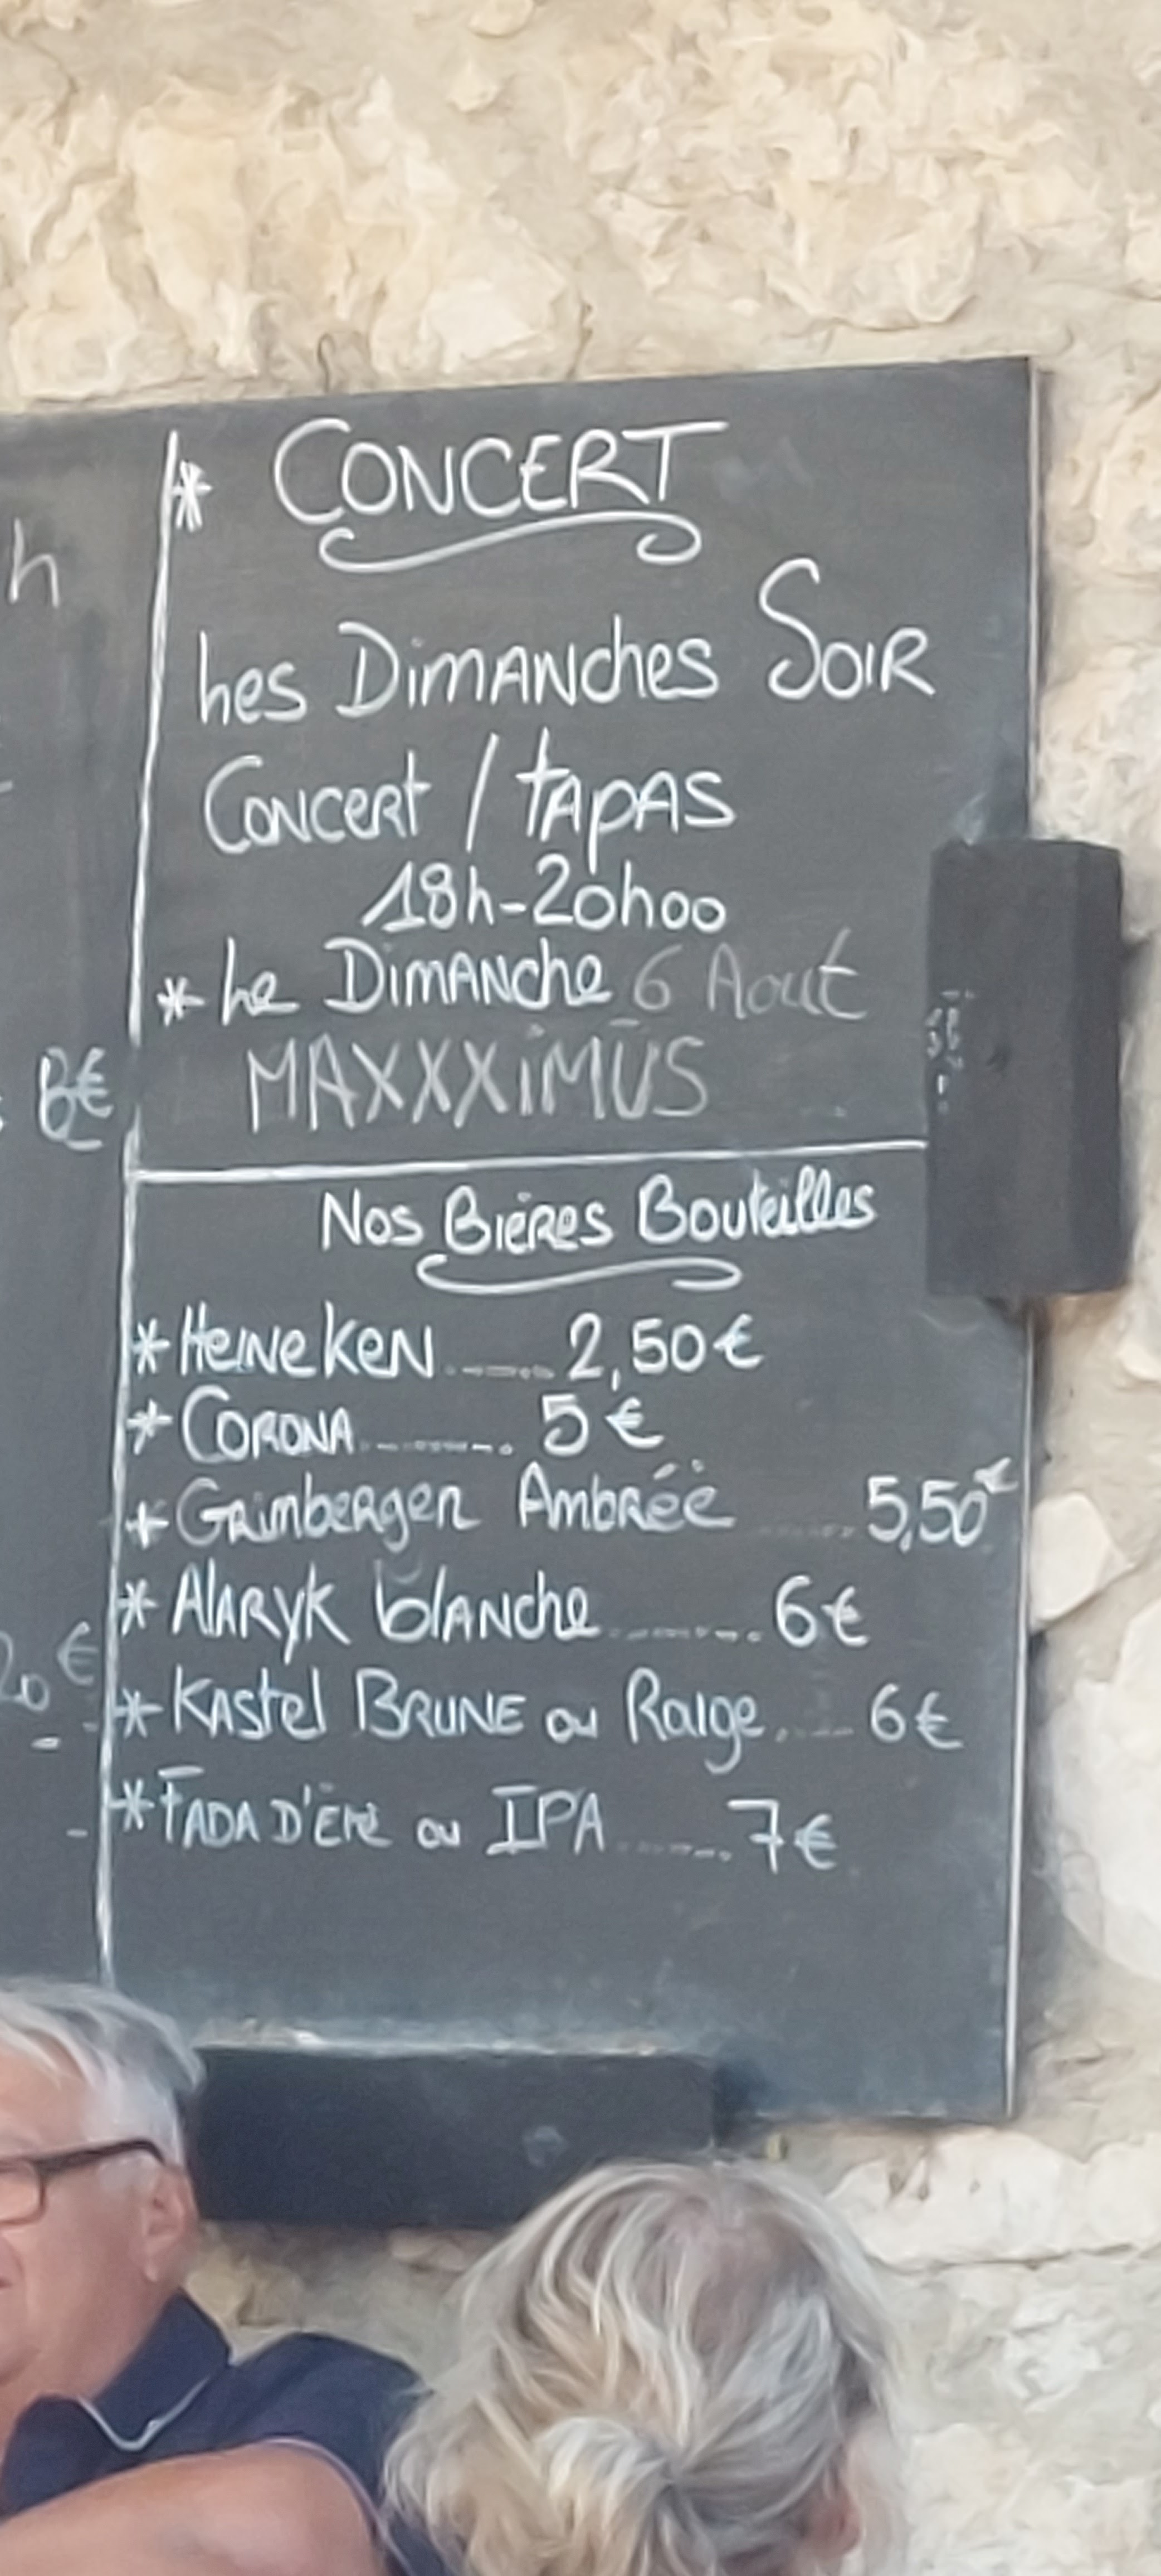 * CONCERT
Les Dimanches Soir
Concert / tapas
18h-20h00
* Le Dimanche 6 Aout
MAXXXiMUS
h
8€
20 €
Nos Bières Bouteilles
* Heineken ........ 2,50€
* Corona ......... 5€
* Grimbergen Ambrée ...... 5,50€
* Alaryk blanche ......... 6€
* Kastel Brune ou Rouge ..... 6€
* Fada D'Été ou IPA ....... 7€